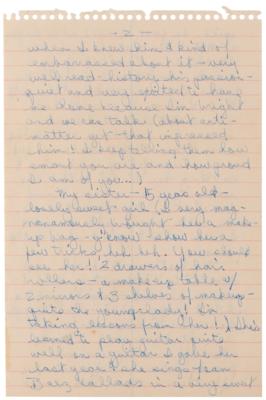 - 2 -
when I knew him & kind of
embarrassed about it - very
well read - history his passion -
quiet and very excited to hang
me alone because I'm bright
and we can talk (about anti-
matter yet - that impressed
him! I keep telling them how
smart you are and how proud
I am of you...)
My sister - 15 years old -
lovely sweet girl (I very mag-
nanamously bought her a make-
up bag - y'know - show her a
few tricks heh heh. You should
see her! 2 drawers of hair
rollers - a make-up table w/
2 mirrors & 3 shelves of makeup -
quite the young lady! I'm
taking lessons from her! & she's
learned to play guitar quite
well on a guitar I gave her
last year & she sings Joan
Baez ballads in a very sweet